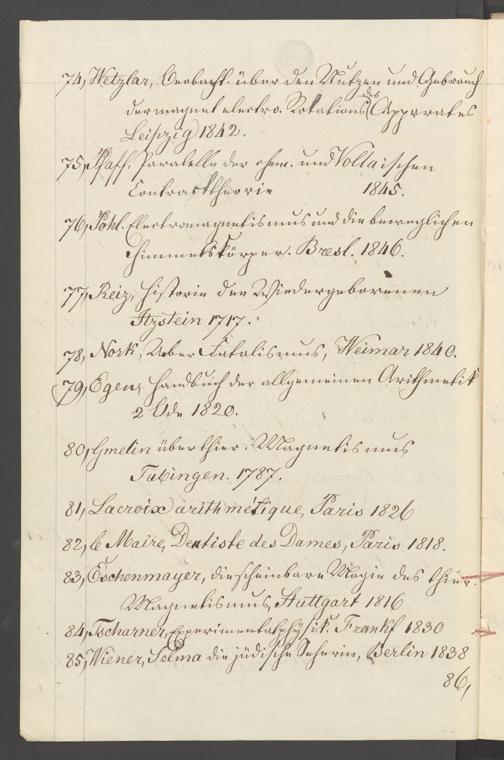 74, Wetzlar, Beobacht. über den Nutzen und Gebrauch
des
der magnet electro. Rotations (Apparates
Leipzig) 1842.
75, Pfaff. Paralelle der chem. und Voltaischen
Contracttheorie 1845.
76, Pohl. Electromagnetismus und die beweglichen
Himmelskörper. Bresl. 1846.
77, Reiz, Historie der Wiedergeborenen
Itzstein 1717.
78, Nork, Ueber Fatalismus, Weimar 1840.
79, Egen, Handbuch der allgemeinen Arithmetik
2 Bde 1820.
80, Gmelin über thier. Magnetismus
Tubingen. 1787.
81, Lacroix arithmétique, Paris 1826
82, le Maire, Dentiste des Dames, Paris 1818.
83, Eschenmayer, die scheinbare Magie des thier.
Magnetismus, Stuttgart 1816
84, Tscharner, Experimentalphysik. Frankf 1830
85, Wiener, Selma die jüdische Seherin, Berlin 1838
86,